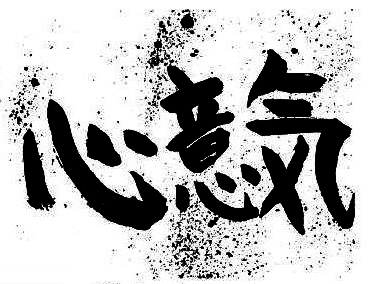 心意気